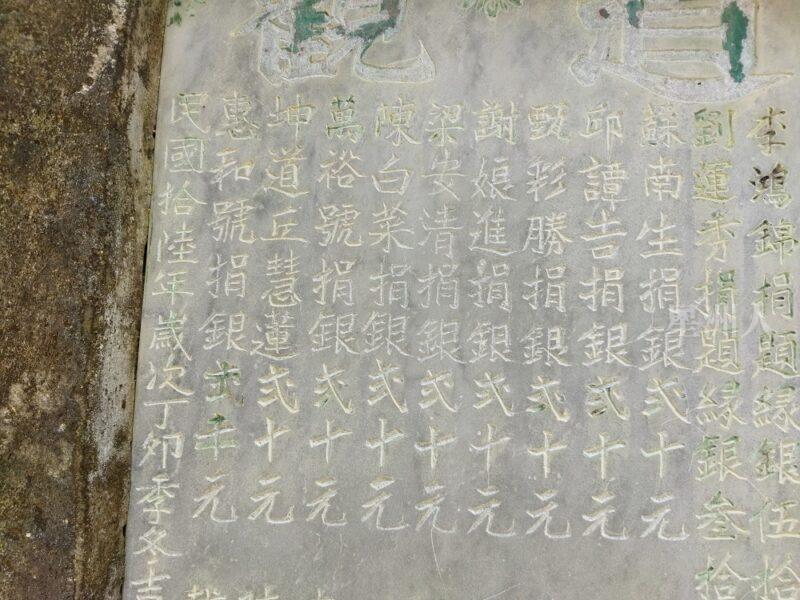 道觀
李鴻錦捐題緣銀伍拾
劉運秀捐題緣銀叁拾
蘇南生捐銀弍十元
邱譚吉捐銀弍十元
甄彩勝捐銀弍十元
謝娘進捐銀弍十元
梁安清捐銀弍十元
陳白菜捐銀弍十元
萬裕號捐銀弍十元
坤道丘慧蓮弍十元
惠和號捐銀弍十元
民國拾陸年歲次丁卯季冬吉